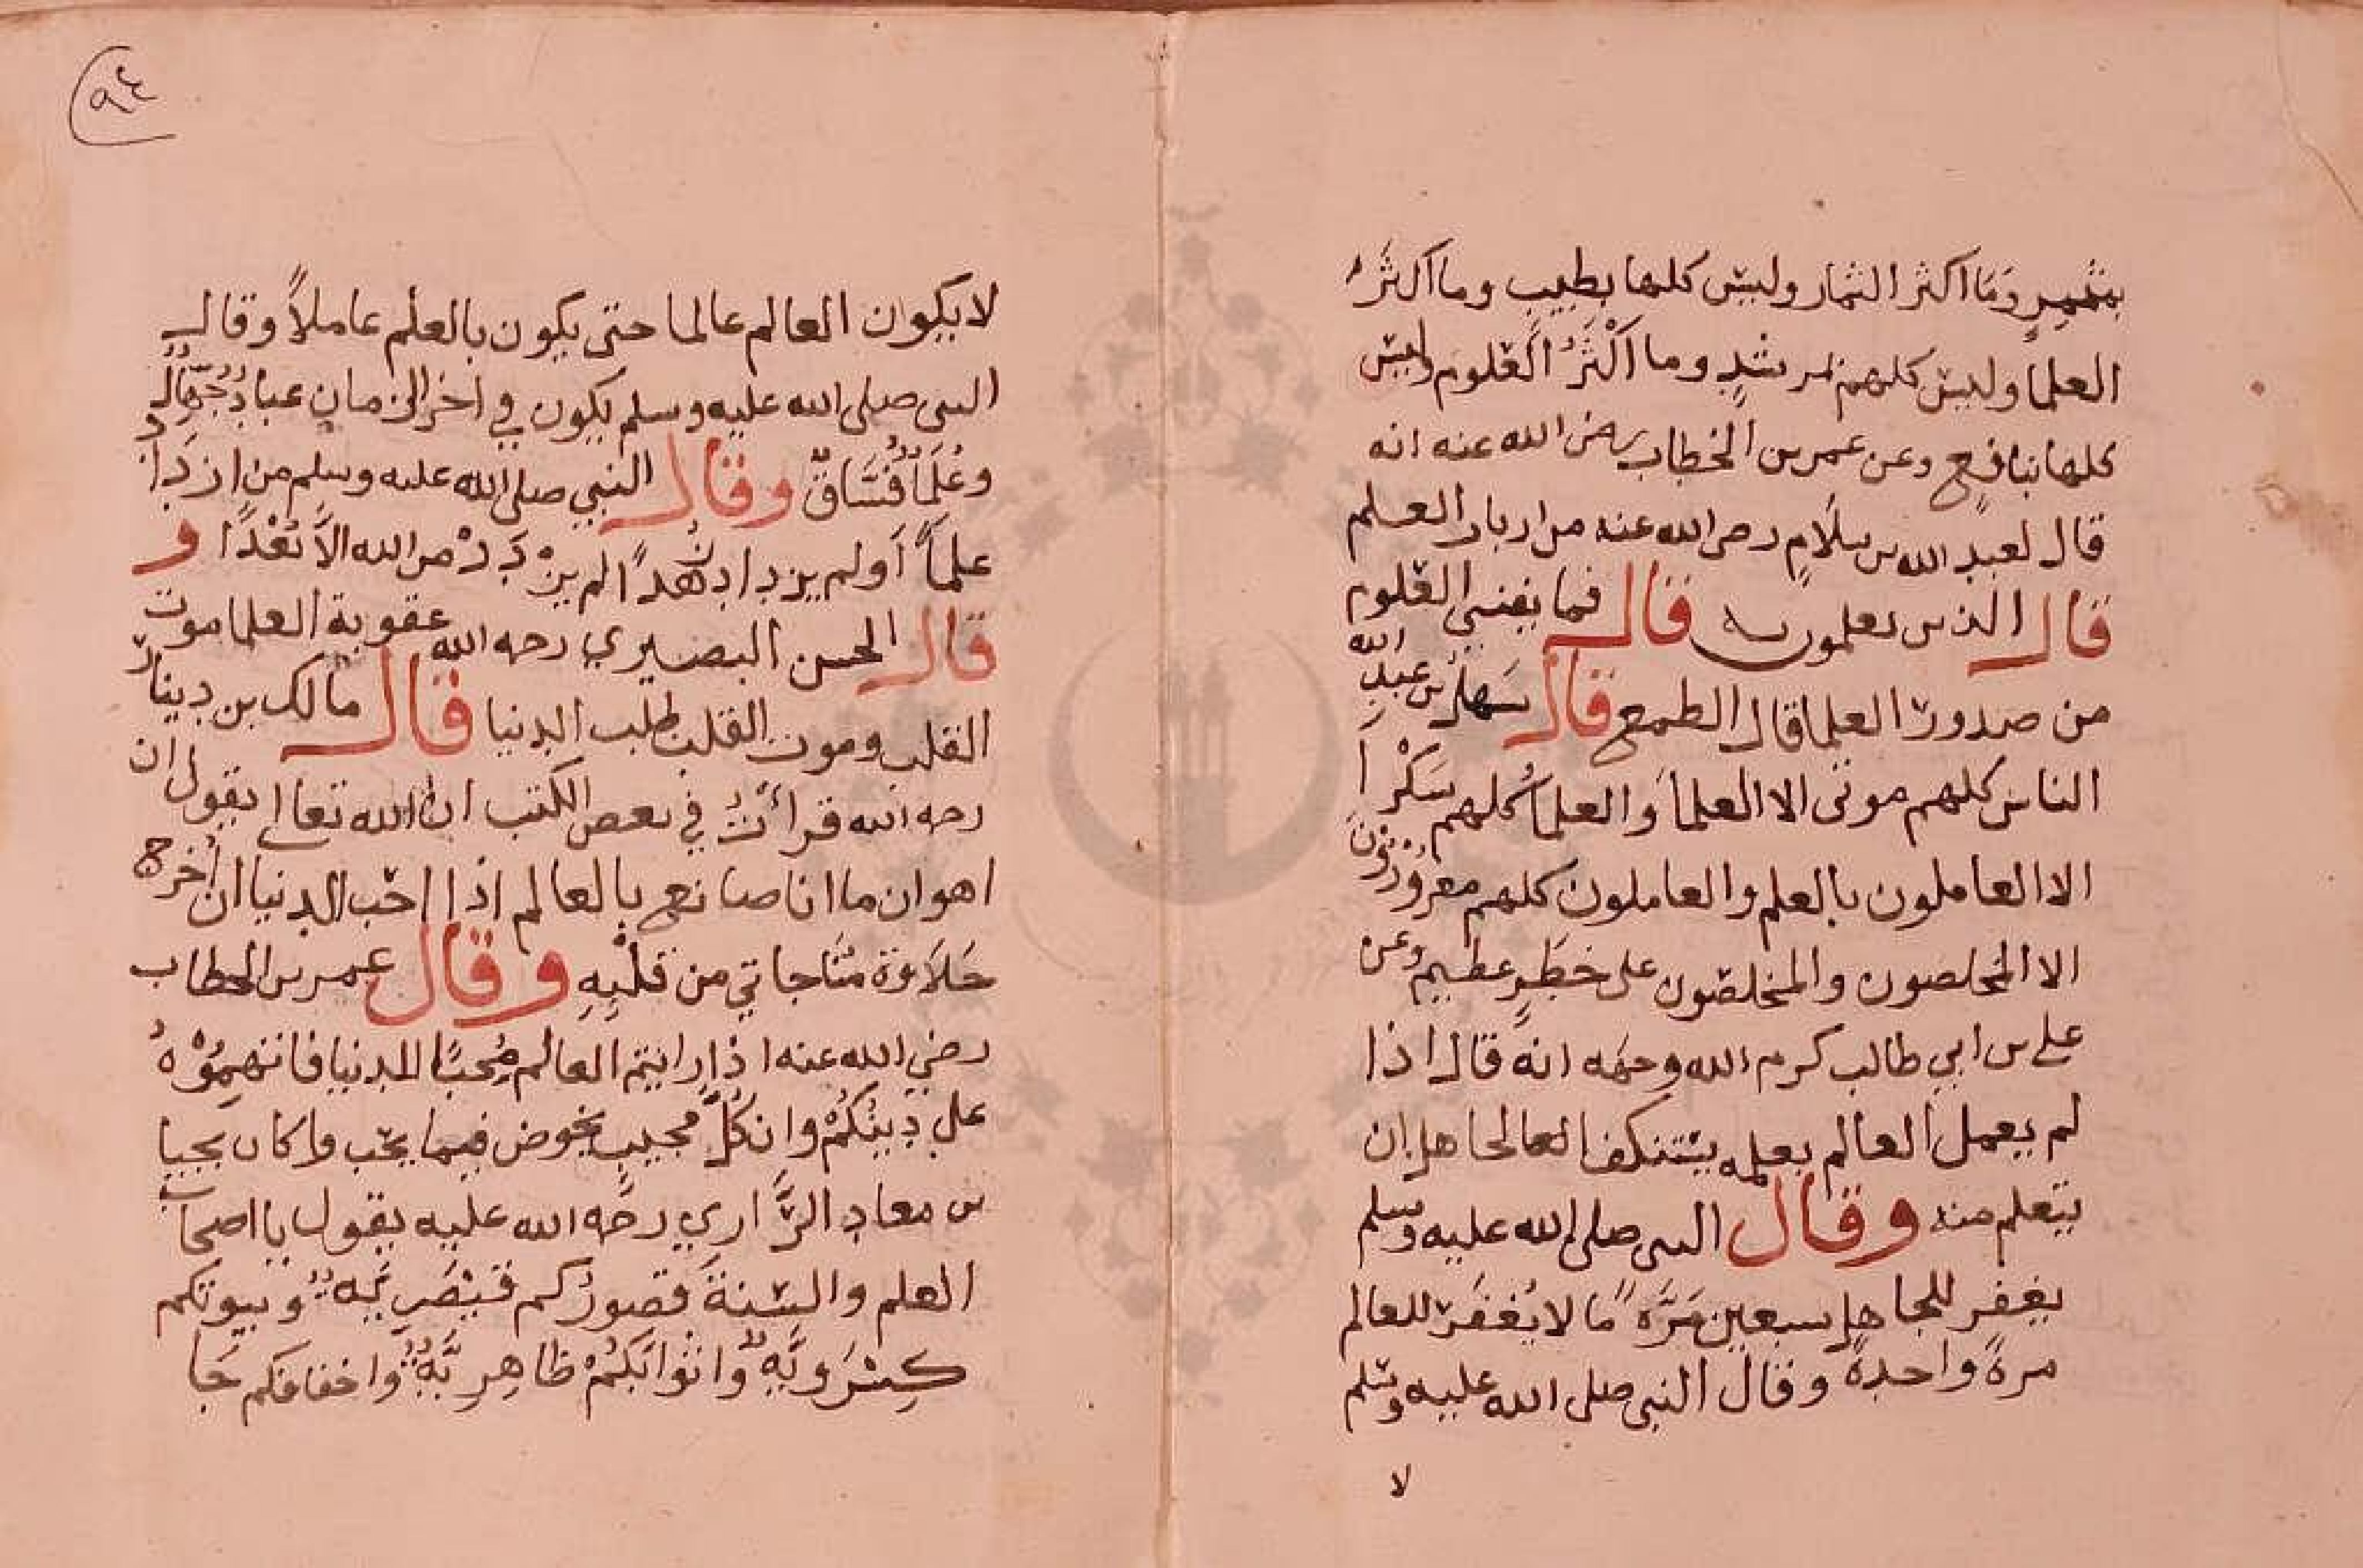 بمثمر وَمَا اكثر الثمار وليس كلها بطيب وما اكثَرُ
العلما وليس كلهم بمرشدٍ وما اَكْثَرُ العَلوم وليس
كلها بنافع وعن عمر بن الخطاب رضى الله عنه انه
قال لعبد الله بن سلَامٍ رضى الله عنه من ارباب العلم
قال الذين يعلمون به قال فما ينفى العلوم
من صدور العلما قال الطمع قال سَهل بن عبد الله
الناس كلهم موتى الا العلمآ وَالعلمآ كُلهم سَكْرآ
الا العاملون بالعلم والعاملون كلهم مغرورون
الا المخلصون والمخلصون على خطَرٍ عظيم وعن
على بن ابي طالب كرم الله وجهه انه قال اذا
لم يعمل العالم بعلمه يستنكف الجاهل ان
يتعلم منه وقال النبى صلى الله عليه وسلم
يغفر للجاهل سبعين مَرَّة مَا لا يُغفَر للعالم
مرةً واحدةً وقال النبى صلى الله عليه وسلم
لا
٩٤
لا يكون العالم عالما حتى يكون بالعلم عاملاً وقال
النبى صلى الله عليه وسلم يكون في اخر الزمان عبادٌ جُهَّالٌ
وعُلَمَآ فُسَّاقٌ وقال النبي صلى الله عليه وسلم من ازدَادَ
علماً اَو لم يزداد زهداً لم يزْدَدْ من الله الاَّ بُعْدًا و
قال الحسن البصيري رحمه الله عقوبة العلما موت
القلب وموت القلب طلب الدنيا قال مالك بن دينار
رحمه الله قرأتُ في بعض الكتب ان الله تعالى يقول ان
اهوان ما انا صانع بالعالم اذا احب الدنيا ان اُخرج
حَلَاوة مُنَاجاتي من قلْبِهِ وقال عمر بن الخطاب
رضي الله عنه اذا رايتم العالم مُحبًا للدنيا فاتهمُوْهُ
على دِينكُمْ وانكُلّ مجيبٍ يخوض فيما يحب وكان يحيا
بن معاد الرَّازي رحمه الله عليه يقول يا اصحاب
العلم والسّنةَ قصورُكم قيْصَرِيَّه وبيوتكم
كِسْرَوِيَّةٌ واثوابَكُمْ ظاهِرِيَّةٌ واخفافكم جَا